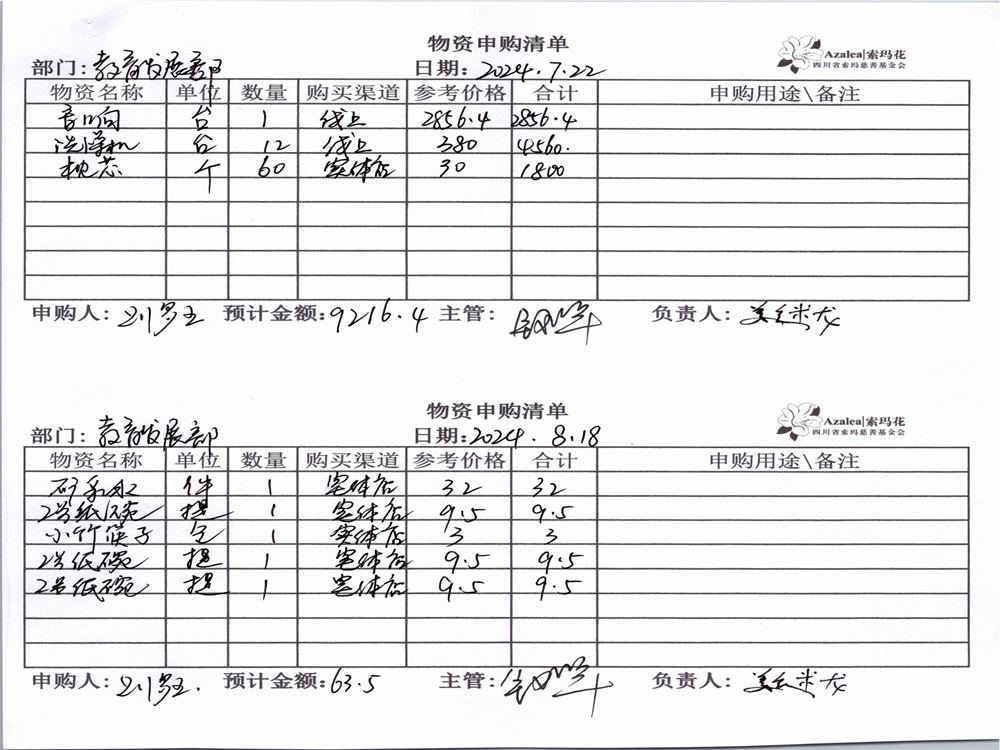 物资申购清单
Azalea|索玛花
四川省索玛慈善基金会
部门：教育发展部 日期：2024.7.22
物资名称 单位 数量 购买渠道 参考价格 合计 申购用途\备注
音响 台 1 线上 2856.4 2856.4
洗澡机 台 12 线上 380 4560.
枕芯 个 60 实体店 30 1800
申购人： 预计金额：9216.4 主管： 负责人：
物资申购清单
Azalea|索玛花
四川省索玛慈善基金会
部门：教育发展部 日期：2024.8.18
物资名称 单位 数量 购买渠道 参考价格 合计 申购用途\备注
件 1 实体店 32 32
2号纸碗 提 1 实体店 9.5 9.5
小竹筷子 包 1 实体店 3 3
2号纸碗 提 1 实体店 9.5 9.5
2号纸碗 提 1 实体店 9.5 9.5
申购人： 预计金额：63.5 主管： 负责人：